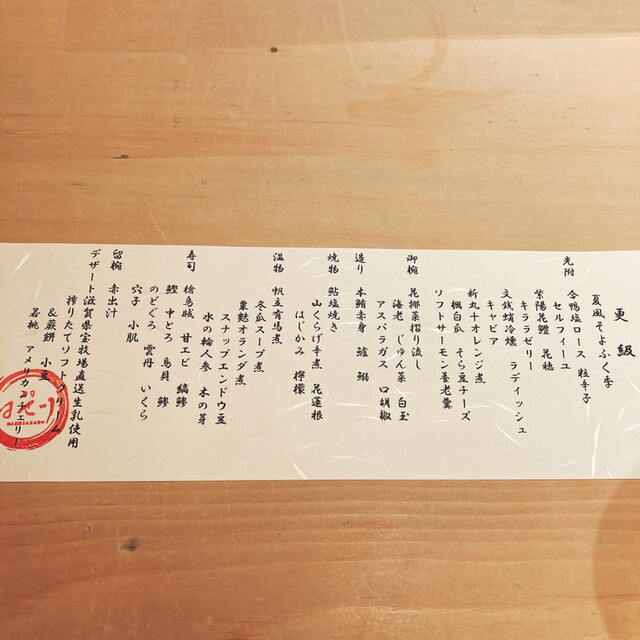 更級
夏風そよふく季
先附 合鴨塩ロース 粒辛子
セルフィーユ
紫陽花鱧 花穂
キララゼリー
文銭蛸冷燻 ラディッシュ
キャビア
新丸十オレンジ煮
楓白瓜 そら豆チーズ
ソフトサーモン養老羹
御椀 花椰菜摺り流し
海老 じゅん菜 白玉
アスパラガス 口胡椒
造り 本鮪赤身 鱸 鰯
焼物 鮎塩焼き
山くらげ辛煮 花蓮根
はじかみ 檸檬
温物 帆立有馬煮
冬瓜スープ煮
粟麩オランダ煮
スナップエンドウ豆
水の輪人参 木の芽
寿司 槍烏賊 甘エビ 縞鯵
鰹 中とろ 鳥貝 鯵
のどぐろ 雲丹 いくら
穴子 小肌
留椀 赤出汁
デザート 滋賀県宝牧場直送生乳使用
搾りたてソフトクリーム
&蕨餅 小豆
若桃 アメリカンチェリー
NISHIAZABU